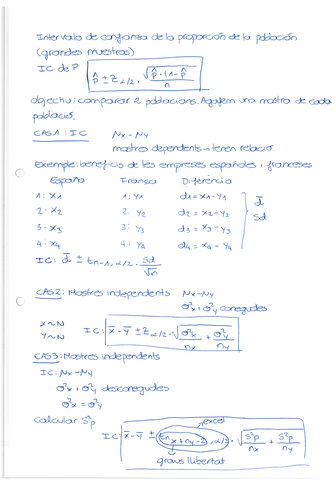 Intervalo de confiansa de la proporción de la población
(grandes muestras)
IC de P  p̂ ± z α/2 · √ p̂·(1-p̂) / n
objectiu: comparar 2 poblacions. Agafem una mostra de cada
població.
CAS 1: IC  μx - μy
mostres dependents → tenen relació
Exemple: beneficis de les empreses españoles i franceses
España  França  Diferència
1: x1  1: y1  d1 = x1 - y1
2: x2  2: y2  d2 = x2 - y2  d̄
3: x3  3: y3  d3 = x3 - y3  Sd
4: x4  4: y4  d4 = x4 - y4
IC: d̄ ± tn-1, α/2 · Sd / √n
CAS 2: Mostres independents  μx - μy
σ²x i σ²y conegudes
X ~ N
Y ~ N  IC: x̄ - ȳ ± z α/2 · √ σ²x / nx + σ²y / ny
CAS 3: Mostres independents
IC: μx - μy
σ²x i σ²y desconegudes
σ²x = σ²y
Calcular S²p  excel
IC: x̄ - ȳ ± t nx + ny - 2, α/2 · √ S²p / nx + S²p / ny
graus llibertat